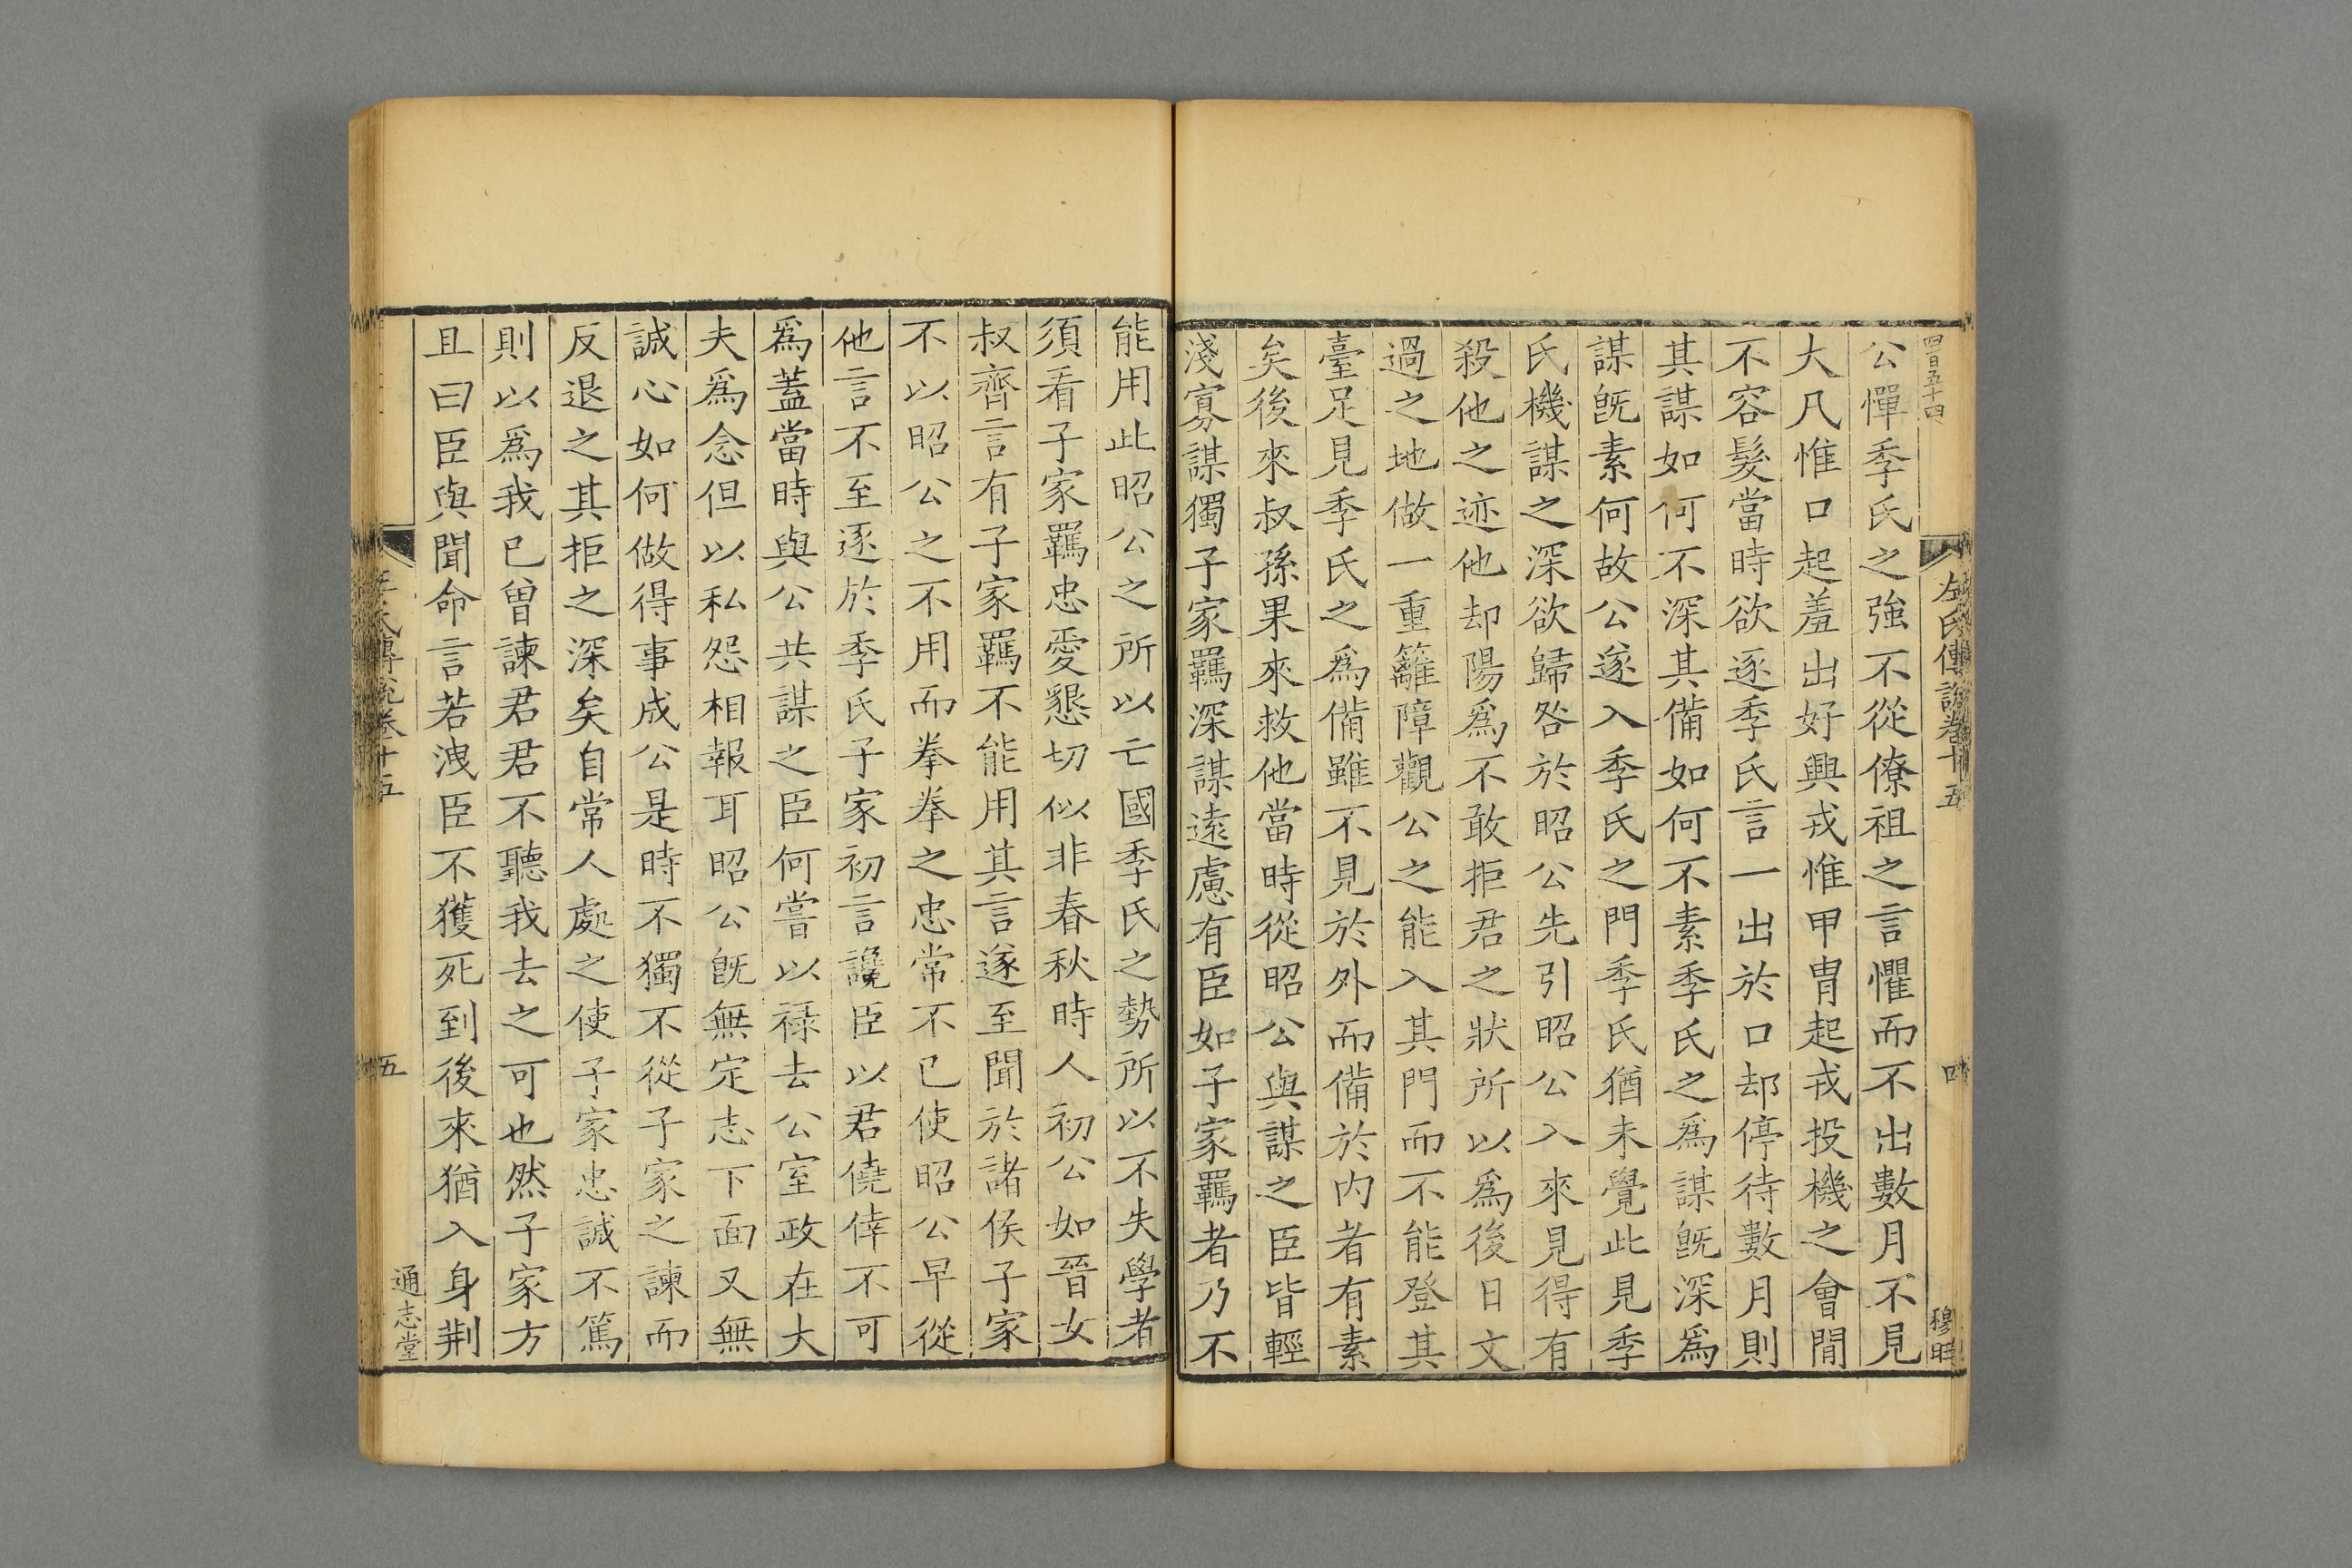 四百五十四
左氏傳說卷十五
四
穆旺
公憚季氏之強不從僚祖之言懼而不出數月不見
大凡惟口起羞出好興戎惟甲胄起戎投機之會間
不容髮當時欲逐季氏言一出於口却停待數月則
其謀如何不深其備如何不素季氏之為謀旣深為
謀旣素何故公遂入季氏之門季氏猶未覺此見季
氏機謀之深欲歸咎於昭公先引昭公入來見得有
殺他之迹他却陽爲不敢拒君之狀所以爲後日文
過之地做一重籬障觀公之能入其門而不能登其
臺足見季氏之爲備雖不見於外而備於内者有素
矣後來叔孫果來救他當時從昭公與謀之臣皆輕
淺寡謀獨子家羈深謀遠慮有臣如子家羈者乃不
能用此昭公之所以亡國季氏之勢所以不失學者
須看子家羈忠愛懇切似非春秋時人初公如晉女
叔齊言有子家羈不能用其言遂至聞於諸侯子家
不以昭公之不用而拳拳之忠常不已使昭公早從
他言不至逐於季氏子家初言讒臣以君僥倖不可
爲蓋當時與公共謀之臣何嘗以祿去公室政在大
夫爲念但以私怨相報耳昭公旣無定志下面又無
誠心如何做得事成公是時不獨不從子家之諫而
反退之其拒之深矣自常人處之使子家忠誠不篤
則以爲我已曾諫君君不聽我去之可也然子家方
且曰臣與聞命言若洩臣不獲死到後來猶入身荆
左氏傳說卷十五
五
通志堂